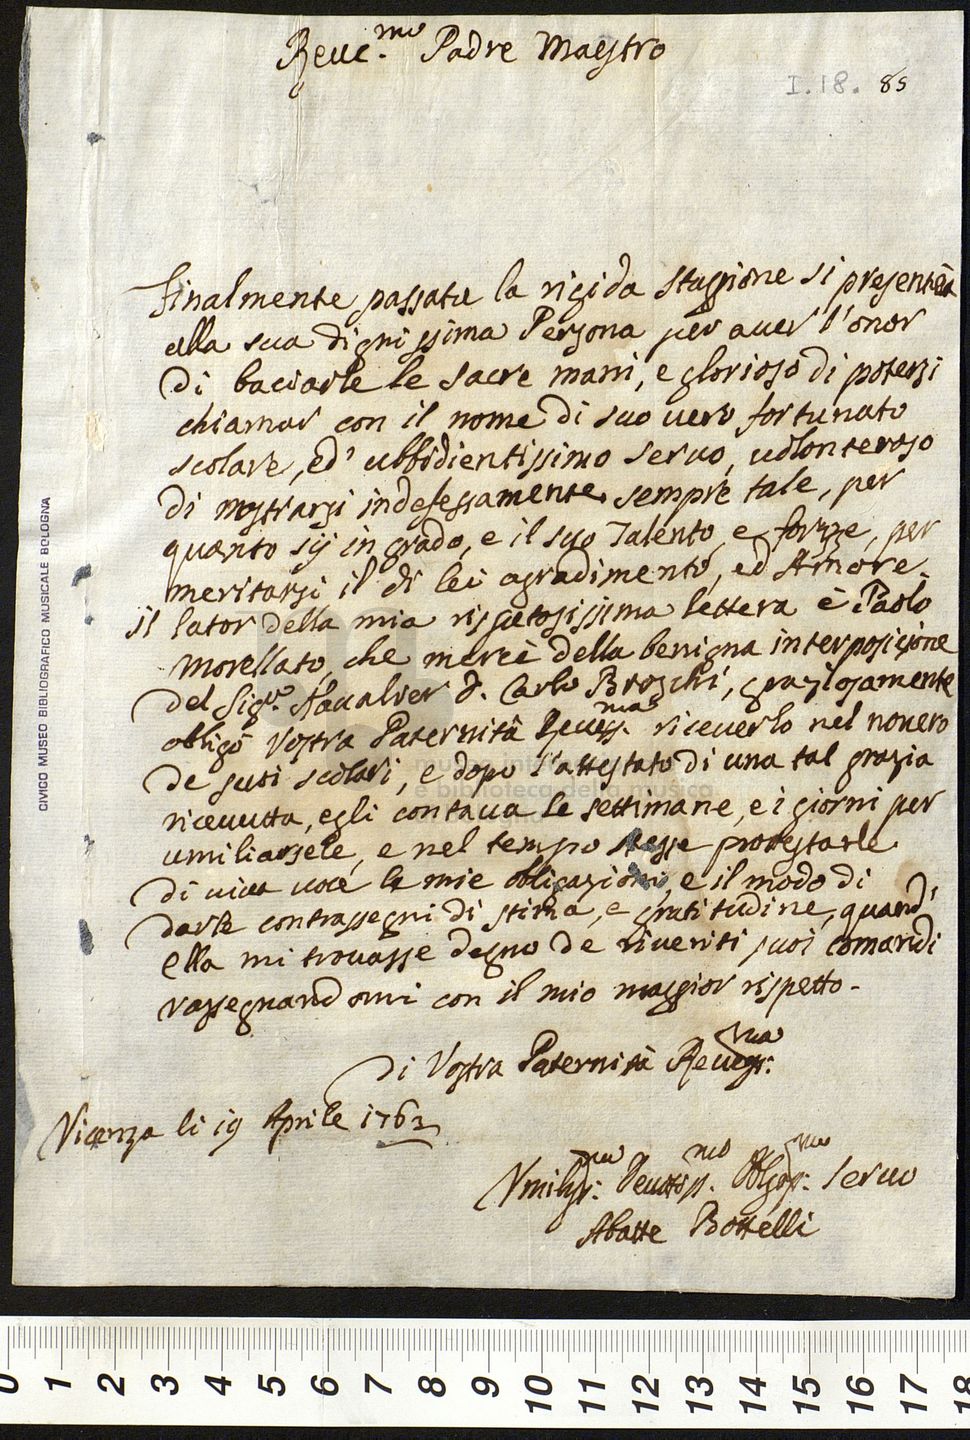 Reue.mo Padre Maestro
I.18. 85
Finalmente passata la rigida staggione si presenterà
alla sua dignissima Persona per auer l'onor
di baciarle le sacre mani, e glorioso di potersi
chiamar con il nome di suo uero fortunato
scolare, ed' ubbidientissimo seruo, uolonteroso
di mostrarsi indefessamente sempre tale, per
quanto sij in grado, e il suo Talento, e forzze, per
meritarsi il di lei agradimento, ed Amore.
il lator della mia rispetosissima lettera è Paolo
Morellato, che mercè della benigna interposizione
del Sig.re Kaualier D. Carlo Broschi, graziosamente
obligò Vostra Paternità Reuess.ma riceuerlo nel nouero
de suoi scolari, e dopo l'attestato di una tal grazia
riceuutta, egli contaua le settimane, e i giorni per
umiliarsele, e nel tempo stesso protestarle
di uiua uoce le mie obligazioni, e il modo di
darle contrassegni di stima, e gratitudine, quand'
ella mi trouasse degno de riueriti suoi comandi
rassegnandomi con il mio maggior rispetto.
di Vostra Paternità Reuess:ma
Vicenza li 19 Aprile 1763
Vmiliss:mo Deuottiss.mo Obligatiss:mo Seruo
Abatte Bottelli
CIVICO MUSEO BIBLIOGRAFICO MUSICALE BOLOGNA
e biblioteca della musica
0 1 2 3 4 5 6 7 8 9 10 11 12 13 14 15 16 17 18